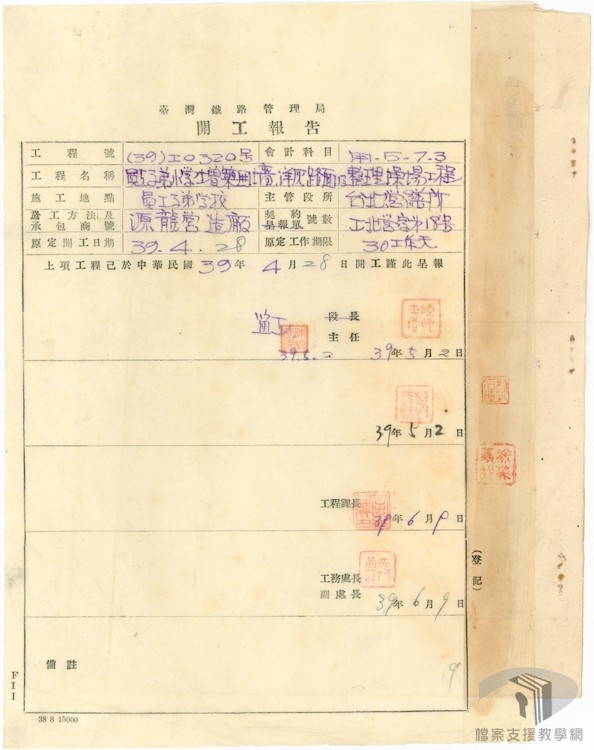 臺灣鐵路管理局
開工報告
工程號 (39)工0320号 會計科目 用.5-7.3
工程名稱 整理操場工程
施工地點 員工子弟学校 主管段所 台北営繕所
施工方法及承包商號 源龍営造廠 契約呈報單號數 工北営字第18号
原定開工日期 39.4.28 原定工作期限 30工作天
上項工程已於中華民國39年4月28日開工謹此呈報
監工 段長
主任
39.5.2 39年5月2日
39年5月2日
工程課長
39年6月9日
工務處長
副處長
39年6月9日
(登記)
備註
9
FII
38 8 15000
檔案支援教學網